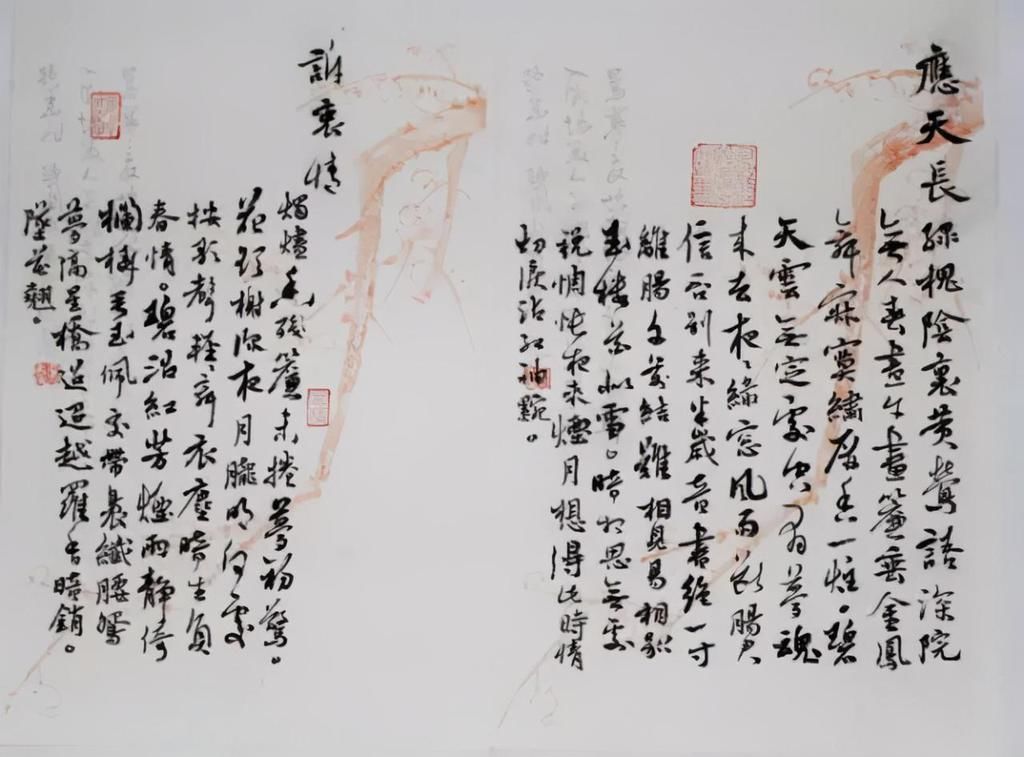 應天長
綠槐陰裏黃鶯語深院
無人春晝午畫簾垂金鳳
舞寂寞繡屏香一炷。碧
天雲無定處空有夢魂
來去夜〻綠窗風雨斷腸君
信否別來半歲音書絕一寸
離腸千萬結難相見易相別
玉樓花似雪。暗相思無處
說惆悵夜來煙月想得此時情
切淚沾紅袖黦。
訴衷情
燭燼香殘簾未捲夢初驚。
花欲謝深夜月朧明何處
按歌聲輕〻舞衣塵暗生負
春情。碧沼紅芳煙雨靜倚
欄橈垂玉佩交帶裊纖腰鴛
夢隔星橋迢迢越羅香暗銷。
墜花翹。